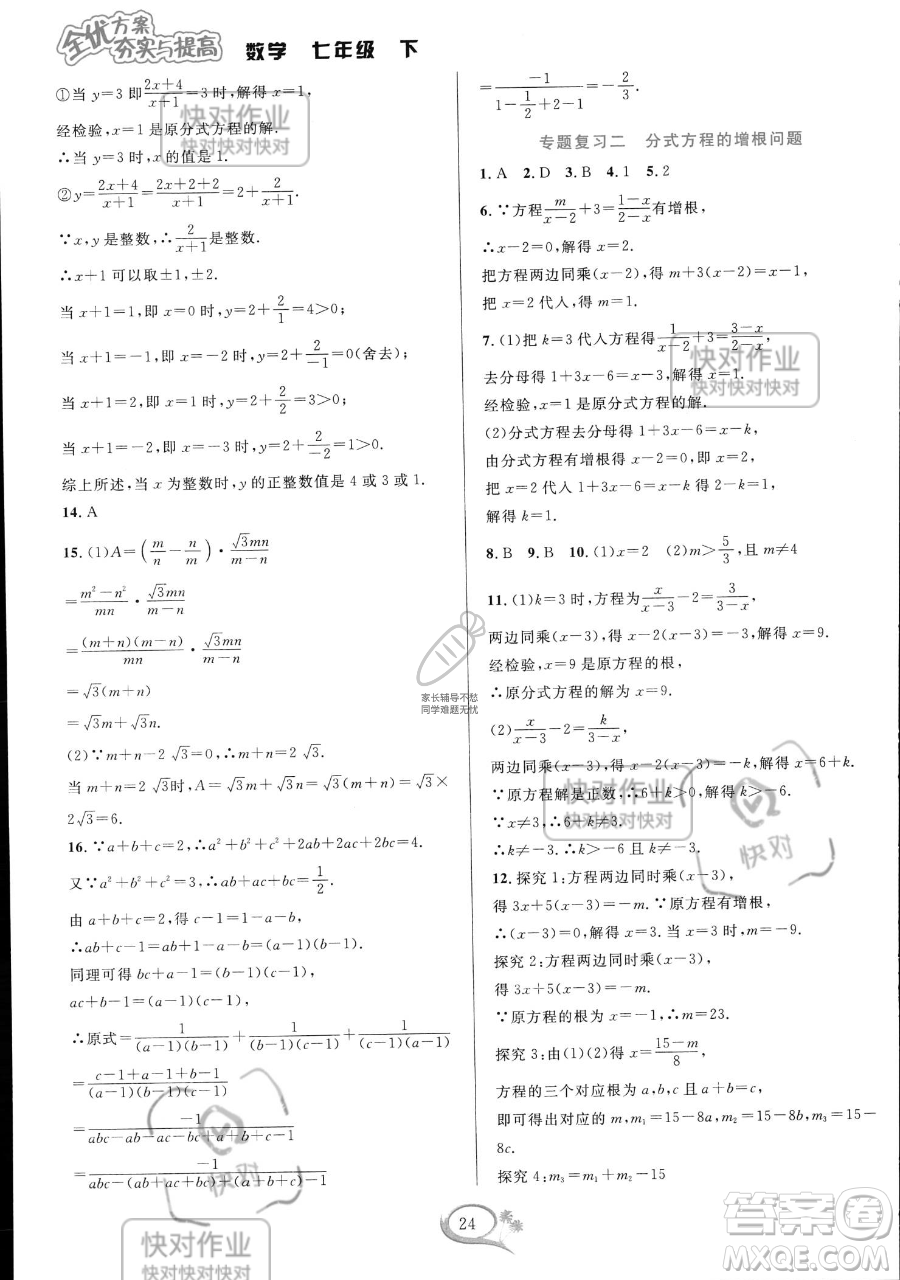 全优方案
夯实与提高
数学 七年级 下
①当 y=3 即\frac{2x+4}{x+1}=3 时,解得 x=1,
经检验,x=1 是原分式方程的解.
∴当 y=3 时,x 的值是 1.
②y=\frac{2x+4}{x+1}=\frac{2x+2+2}{x+1}=2+\frac{2}{x+1}.
∵x,y 是整数,∴\frac{2}{x+1}是整数.
∴x+1 可以取±1,±2.
当 x+1=1,即 x=0 时,y=2+\frac{2}{1}=4>0;
当 x+1=-1,即 x=-2 时,y=2+\frac{2}{-1}=0(舍去);
当 x+1=2,即 x=1 时,y=2+\frac{2}{2}=3>0;
当 x+1=-2,即 x=-3 时,y=2+\frac{2}{-2}=1>0.
综上所述,当 x 为整数时,y 的正整数值是 4 或 3 或 1.
14. A
15. (1)A=(\frac{m}{n}-\frac{n}{m})·\frac{√3mn}{m-n}
=\frac{m²-n²}{mn}·\frac{√3mn}{m-n}
=\frac{(m+n)(m-n)}{mn}·\frac{√3mn}{m-n}
=√3(m+n)
=√3m+√3n.
(2)∵m+n-2√3=0,∴m+n=2√3.
当 m+n=2√3时,A=√3m+√3n=√3(m+n)=√3×
2√3=6.
16. ∵a+b+c=2,∴a²+b²+c²+2ab+2ac+2bc=4.
又∵a²+b²+c²=3,∴ab+ac+bc=\frac{1}{2}.
由 a+b+c=2,得 c-1=1-a-b,
∴ab+c-1=ab+1-a-b=(a-1)(b-1).
同理可得 bc+a-1=(b-1)(c-1),
ac+b-1=(a-1)(c-1),
∴原式=\frac{1}{(a-1)(b-1)}+\frac{1}{(b-1)(c-1)}+\frac{1}{(a-1)(c-1)}
=\frac{c-1+a-1+b-1}{(a-1)(b-1)(c-1)}
=\frac{-1}{abc-ab-ac-bc+a+b+c-1}
=\frac{-1}{abc-(ab+ac+bc)+(a+b+c)-1}
=\frac{-1}{1-\frac{1}{2}+2-1}=-\frac{2}{3}.
专题复习二 分式方程的增根问题
1. A 2. D 3. B 4. 1 5. 2
6. ∵方程\frac{m}{x-2}+3=\frac{1-x}{2-x}有增根,
∴x-2=0,解得 x=2.
把方程两边同乘(x-2),得 m+3(x-2)=x-1,
把 x=2 代入,得 m=1.
7. (1)把 k=3 代入方程得\frac{1}{x-2}+3=\frac{3-x}{2-x},
去分母得 1+3x-6=x-3,解得 x=1.
经检验,x=1 是原分式方程的解.
(2)分式方程去分母得 1+3x-6=x-k,
由分式方程有增根,得到 x-2=0,即 x=2,
把 x=2 代入 1+3x-6=x-k 得 1=2-k,
解得 k=1.
8. B 9. B 10. (1)x=2 (2)m>\frac{5}{3},且 m≠4
11. (1)k=3 时,方程为\frac{x}{x-3}-2=\frac{3}{3-x},
两边同乘(x-3),得 x-2(x-3)=-3,解得 x=9.
经检验,x=9 是原方程的根,
∴原分式方程的解为 x=9.
(2)\frac{x}{x-3}-2=\frac{k}{3-x},
两边同乘(x-3),得 x-2(x-3)=-k,解得 x=6+k.
∵原方程解是正数,∴6+k>0,解得 k>-6.
∵x≠3,∴6+k≠3.
∴k≠-3. ∴k>-6 且 k≠-3.
12. 探究 1:方程两边同时乘(x-3),
得 3x+5(x-3)=-m. ∵原方程有增根,
∴(x-3)=0,解得 x=3. 当 x=3 时,m=-9.
探究 2:方程两边同时乘(x-3),
得 3x+5(x-3)=-m.
∵原方程的根为 x=-1,∴m=23.
探究 3:由(1)(2)得 x=\frac{15-m}{8},
方程的三个对应根为 a,b,c,
即可得出对应的 m,m₁=15-8a,m₂=15-8b,m₃=15-
8c.
探究 4:m₃=m₁+m₂-15
24
快对作业
快对快对快对
快对作业
快对快对快对
家长辅导不愁
同学难题无忧
快对作业
快对快对快对
快对
快对
快对作业
快对快对快对
答案卷
MXQE.COM